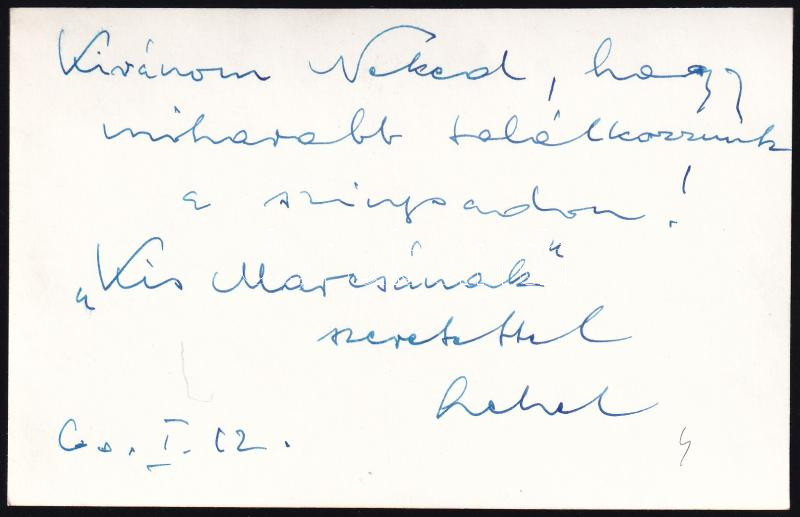 Kivánom Neked, hogy
miharabb találkozzunk
a szinpadon!
„Kis Marcsának"
szeretettel
Lehel
60. I. 12.